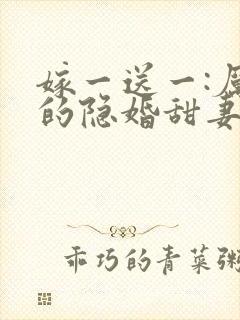 嫁一送一:
的隐婚甜妻
乖巧的青菜粥